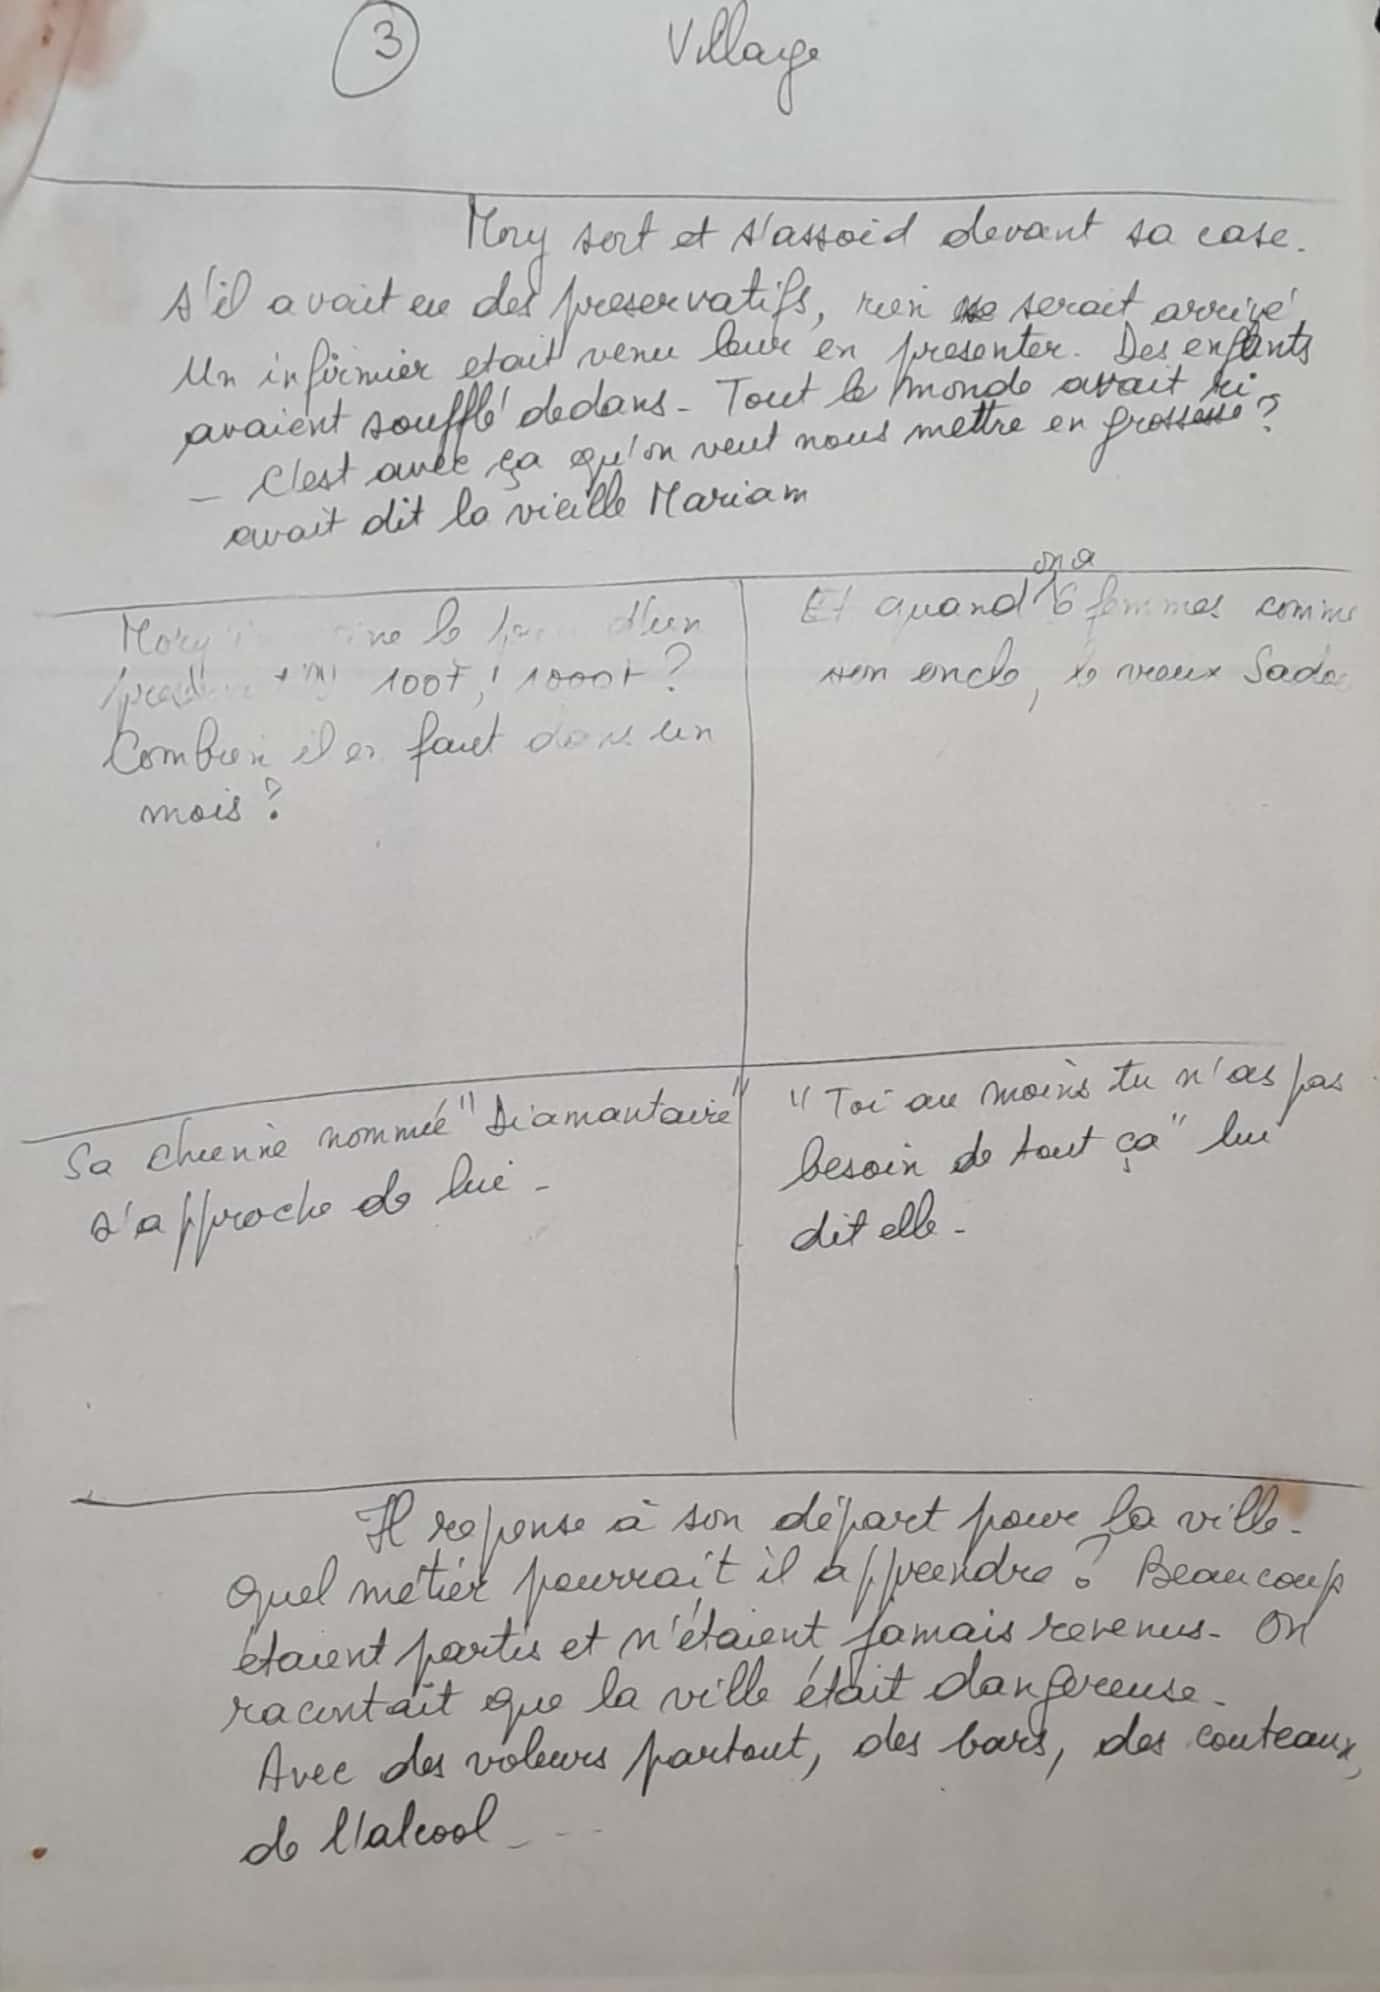 3 Village
Mory sort et s'assoid devant sa case.
s'il avait eu des preservatifs, rien ne serait arrivé.
Un infirmier etait venu leur en presenter. Des enfants
avaient soufflé dedans - Tout le monde avait ri
- C'est avec ça qu'on veut nous mettre en grossesse ?
avait dit la vieille Mariam
Mory le d'un
100F, 1000F ?
Combien il en faut dans un
mois ?
Et quand on a 6 femmes comme
son oncle, le vieux Sado
Sa chienne nommée "Diamantaire"
s'approche de lui -
"Toi au moins tu n'as pas
besoin de tout ça" lui
dit elle -
Il repense à son départ pour la ville -
Quel métier pourrait il apprendre ? Beaucoup
étaient partis et n'étaient jamais revenus - On
racontait que la ville était dangereuse -
Avec des voleurs partout, des bars, des couteaux,
de l'alcool - - -